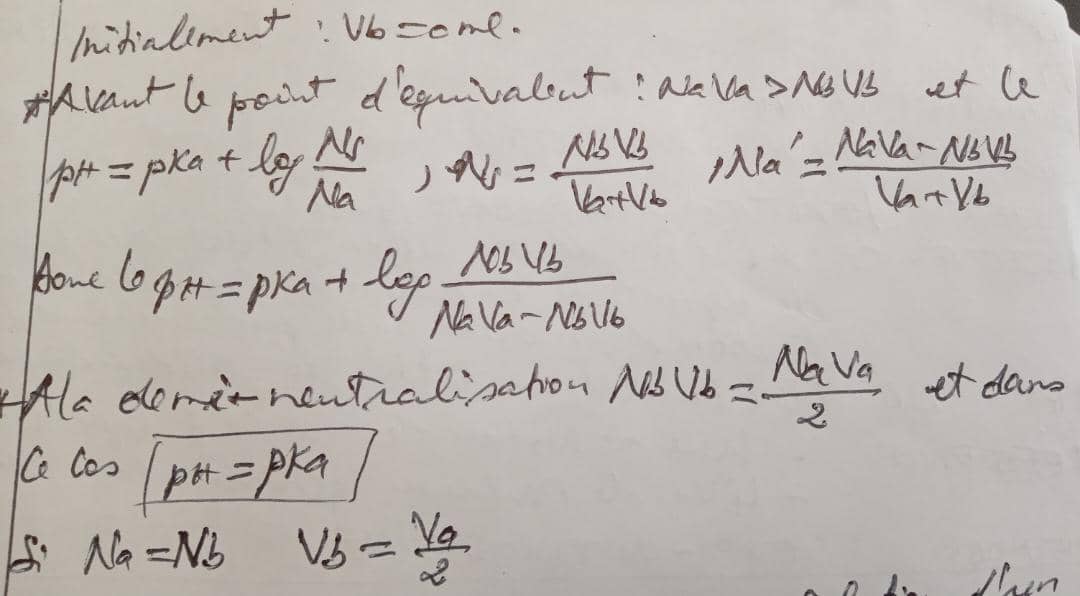 Initialement : Vb = 0 ml.
* Avant le point d'équivalent : NaVa > NbVb et le
pH = pKa + log Ns/Na , Ns = NbVb/(Va+Vb) , Na' = (NaVa - NbVb)/(Va + Vb)
donc le pH = pKa + log NbVb/(NaVa - NbVb)
* A la demi-neutralisation NbVb = NaVa/2 et dans
Ce cas pH = pKa
Si Na = Nb Vb = Va/2
d'un